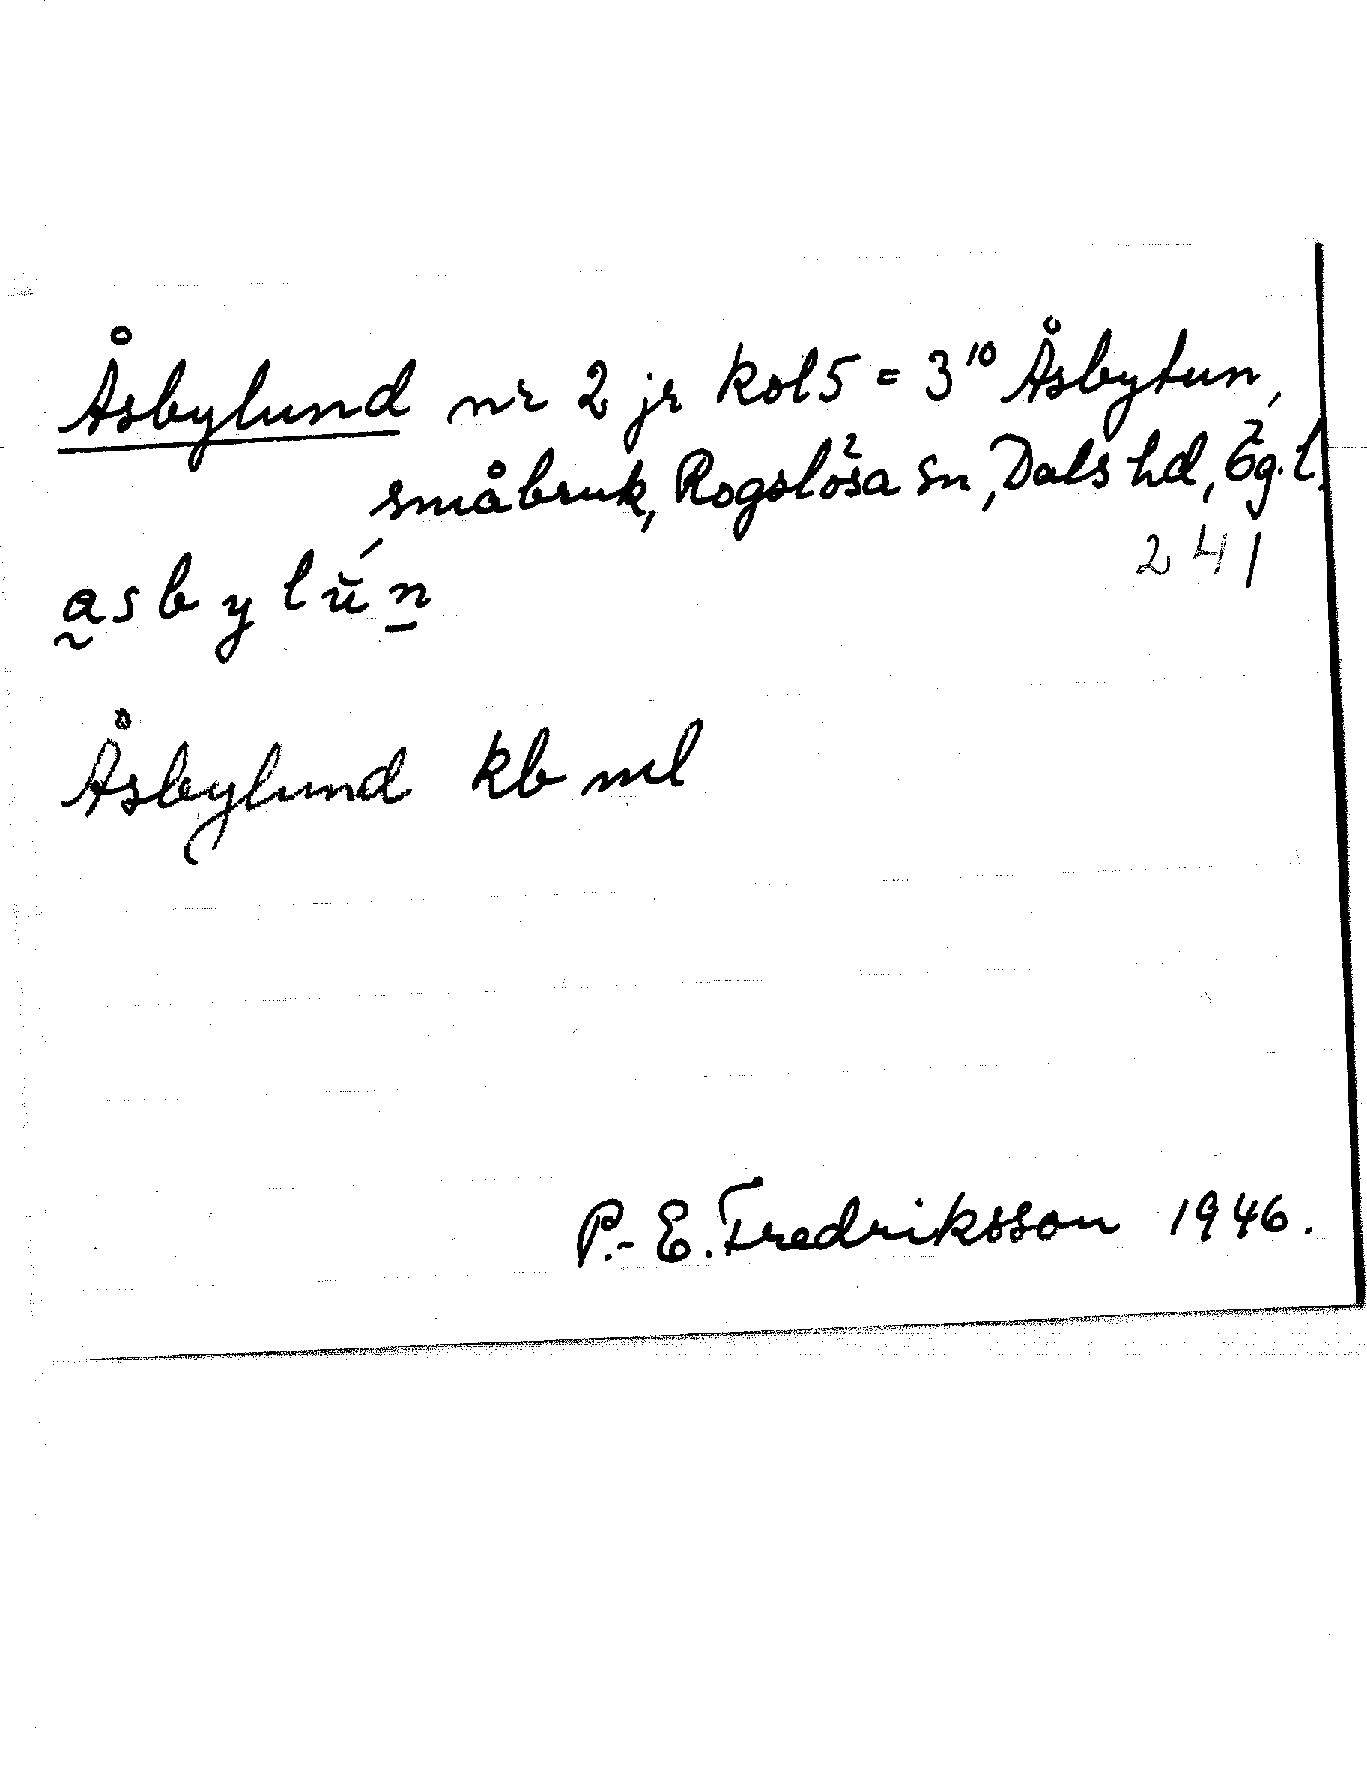 Åsbylund nr 2 jr kol 5 = 3¹⁰ Åsbytun,
småbruk, Rogslösa sn, Dals hd, Ög. l.
241
a̰sbylŭ́n̲
Åsbylund kb ml
P.-E. Fredriksson 1946.